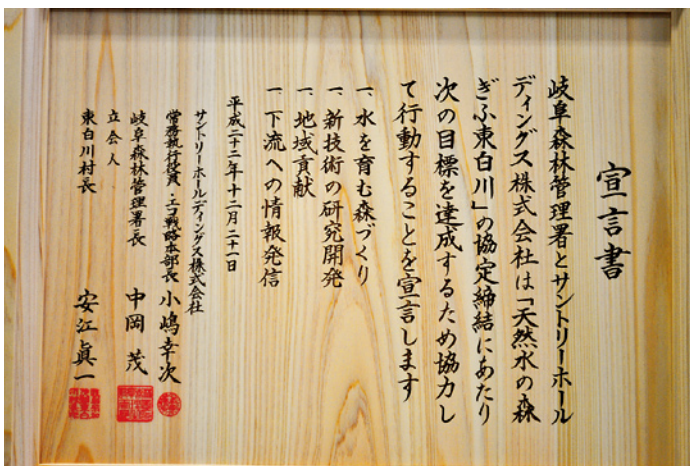 宣言書
岐阜森林管理署とサントリーホール
ディングス株式会社は「天然水の森
ぎふ東白川」の協定締結にあたり
次の目標を達成するため協力し
て行動することを宣言します
一、水を育む森づくり
一、新技術の研究開発
一、地域貢献
一、下流への情報発信
平成二十二年十二月二十一日
サントリーホールディングス株式会社
常務執行役員・エコ戦略本部長 小嶋幸次
岐阜森林管理署長 中岡茂
立会人
東白川村長 安江眞一